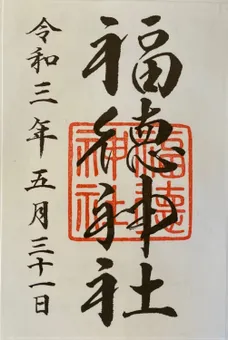 福徳神社
福徳
神社
令和三年五月三十一日